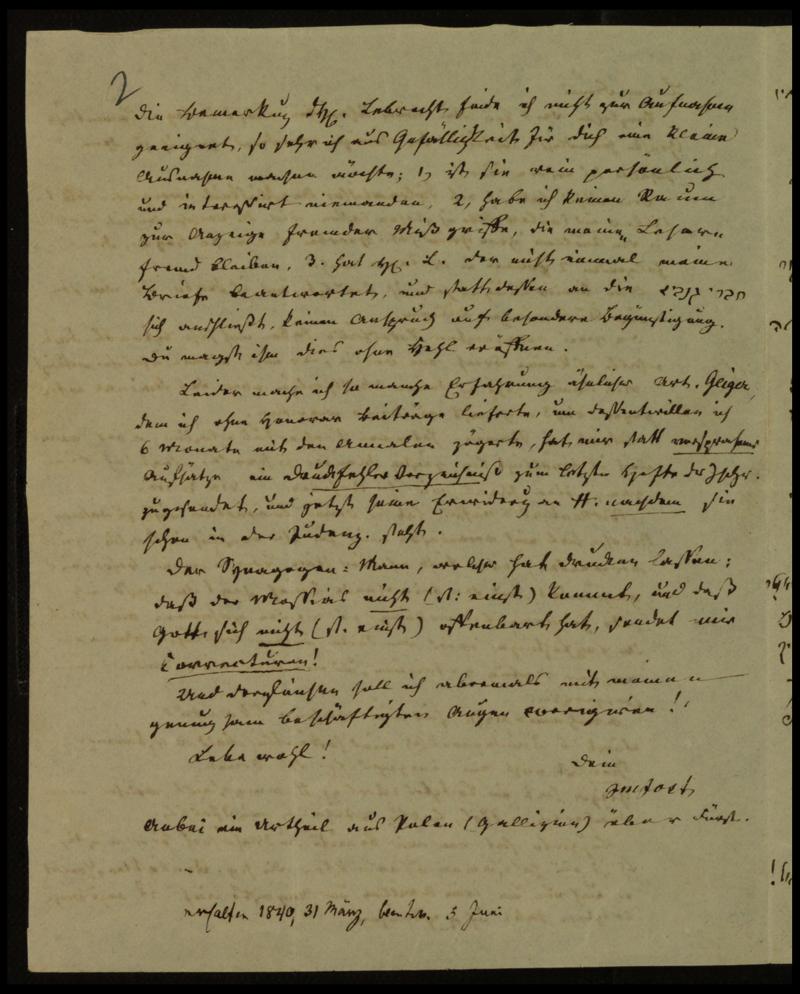 2
Die Bemerkung des H. Lebrecht finde ich nicht zur Aufnahme
geeignet, so sehr ich aus Gefälligkeit für dich eine kleine
Ausnahme machen möchte; 1, ist sie rein persönlich
und interessirt niemanden, 2, habe ich keinen Raum
zur Anzeige fremder Mißgriffe, die meinen Lesern
fremd bleiben, 3. hat H. L. der nicht einmal meine
Briefe beantwortet, und statt dessen an die
sich anschließt, keinen Anspruch auf besondere Begünstigung.
Du magst ihm dies ohne Hehl eröffnen.
Leider mache ich so manche Erfahrung ähnlicher Art. Geiger,
dem ich ohne Honorar Beiträge lieferte, um dessentwillen ich
6 Monate mit den Annalen zögerte, hat mir statt versprochener
Aufsätze ein Druckfehler Verzeichniß zum letzten Hefte der Zschr.
zugesendet, und jetzt seine Erwiderg an H. nachdem sie
schon in der Judenz. steht.
Der Synagogen-Mann, welcher hat drucken lassen:
daß der Messias nicht (st: einst) kommt, und daß
Gott sich nicht (st. einst) offenbart hat, sendet mir
Correcturen!
Und dergleichen soll ich abermals mit meinen
genugsam beschäftigten Augen corrigiren!
Lebe wohl!
Dein
Jost
Anbei ein Urtheil aus Polen (Gallizien) über Fürst.
erhalten 1840, 31 März, beantw. 5 Juni